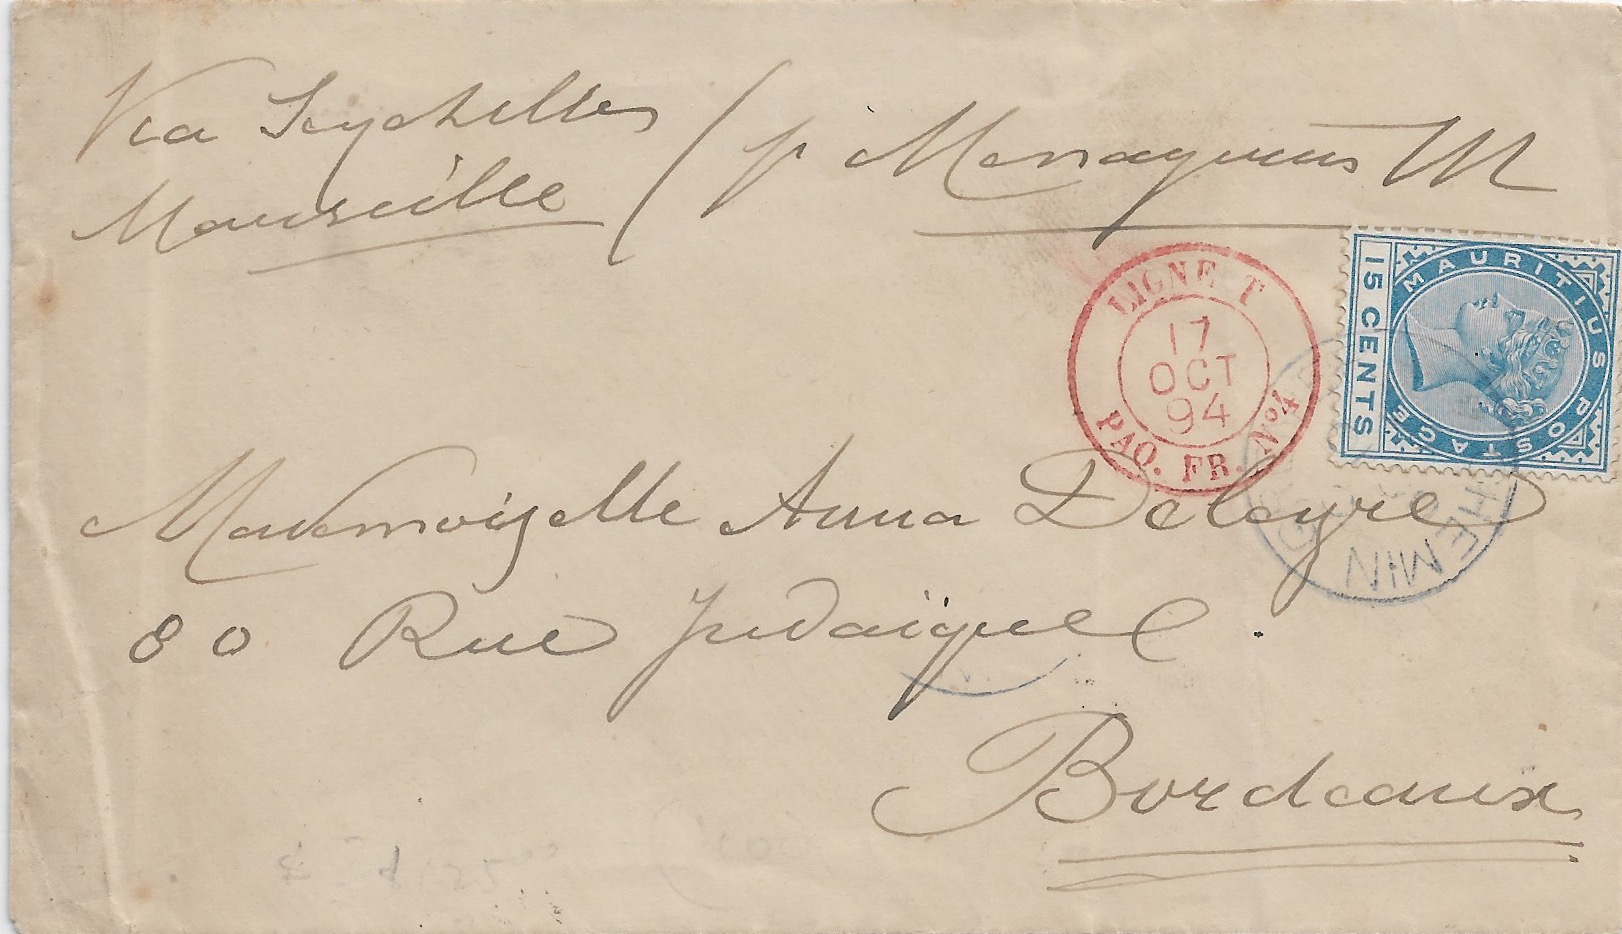 Via Seychelles
Marseille / p Messageries M
MAURITIUS POSTAGE
15 CENTS
LIGNE T
17
OCT
94
PAQ. FR. No 4
Mademoiselle Anna Deleyre
80 Rue Judaïque
Bordeaux